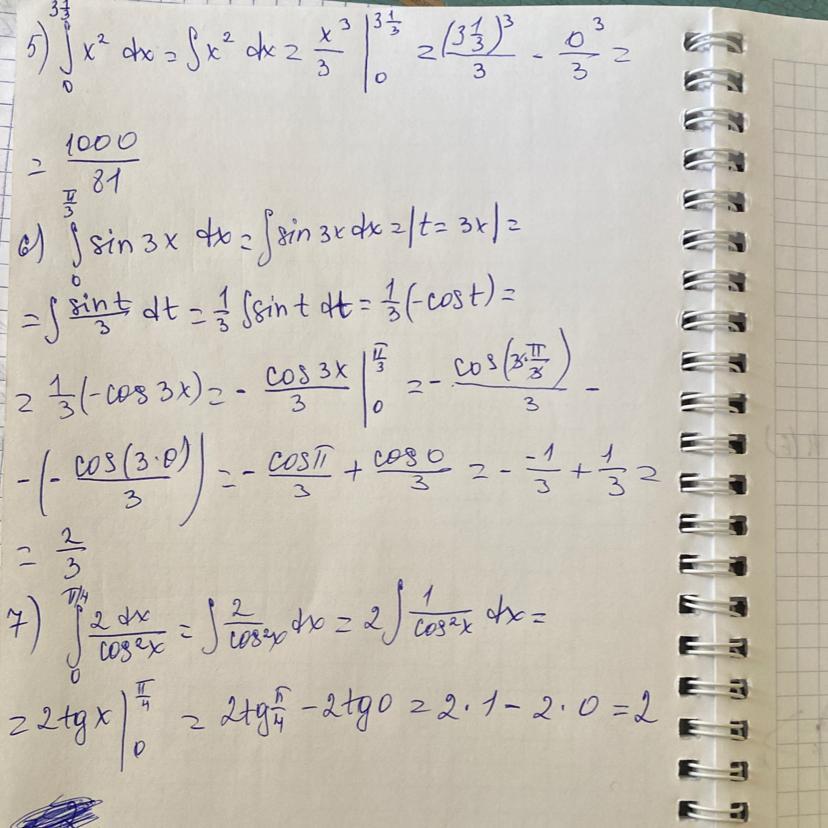 5) ∫₀^{3 1/3} x² dx = ∫x² dx = x³/3 |₀^{3 1/3} = (3 1/3)³/3 - 0³/3 =
= 1000/81
6) ∫₀^{π/3} sin 3x dx = ∫sin 3x dx = |t = 3x| =
= ∫ sin t/3 dt = 1/3 ∫sin t dt = 1/3 (-cos t) =
= 1/3 (-cos 3x) = - cos 3x/3 |₀^{π/3} = - cos(3·π/3)/3 -
-(- cos(3·0)/3) = - cosπ/3 + cos0/3 = - -1/3 + 1/3 =
= 2/3
7) ∫₀^{π/4} 2 dx/cos²x = ∫ 2/cos²x dx = 2∫ 1/cos²x dx =
= 2tg x |₀^{π/4} = 2tg π/4 - 2tg0 = 2·1 - 2·0 = 2